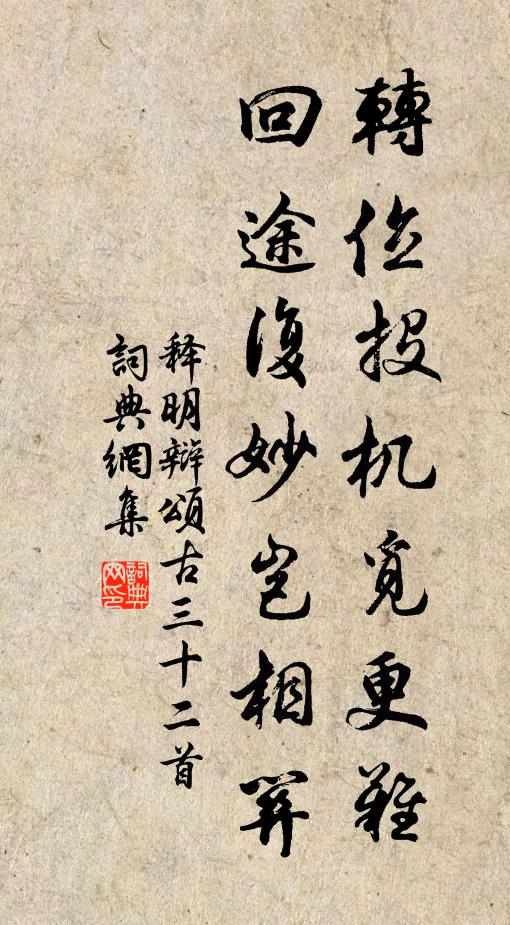 轉位投机覓更難
回途復妙岂相關
释明辯頌古三十二首
詞典網集
詞典网印